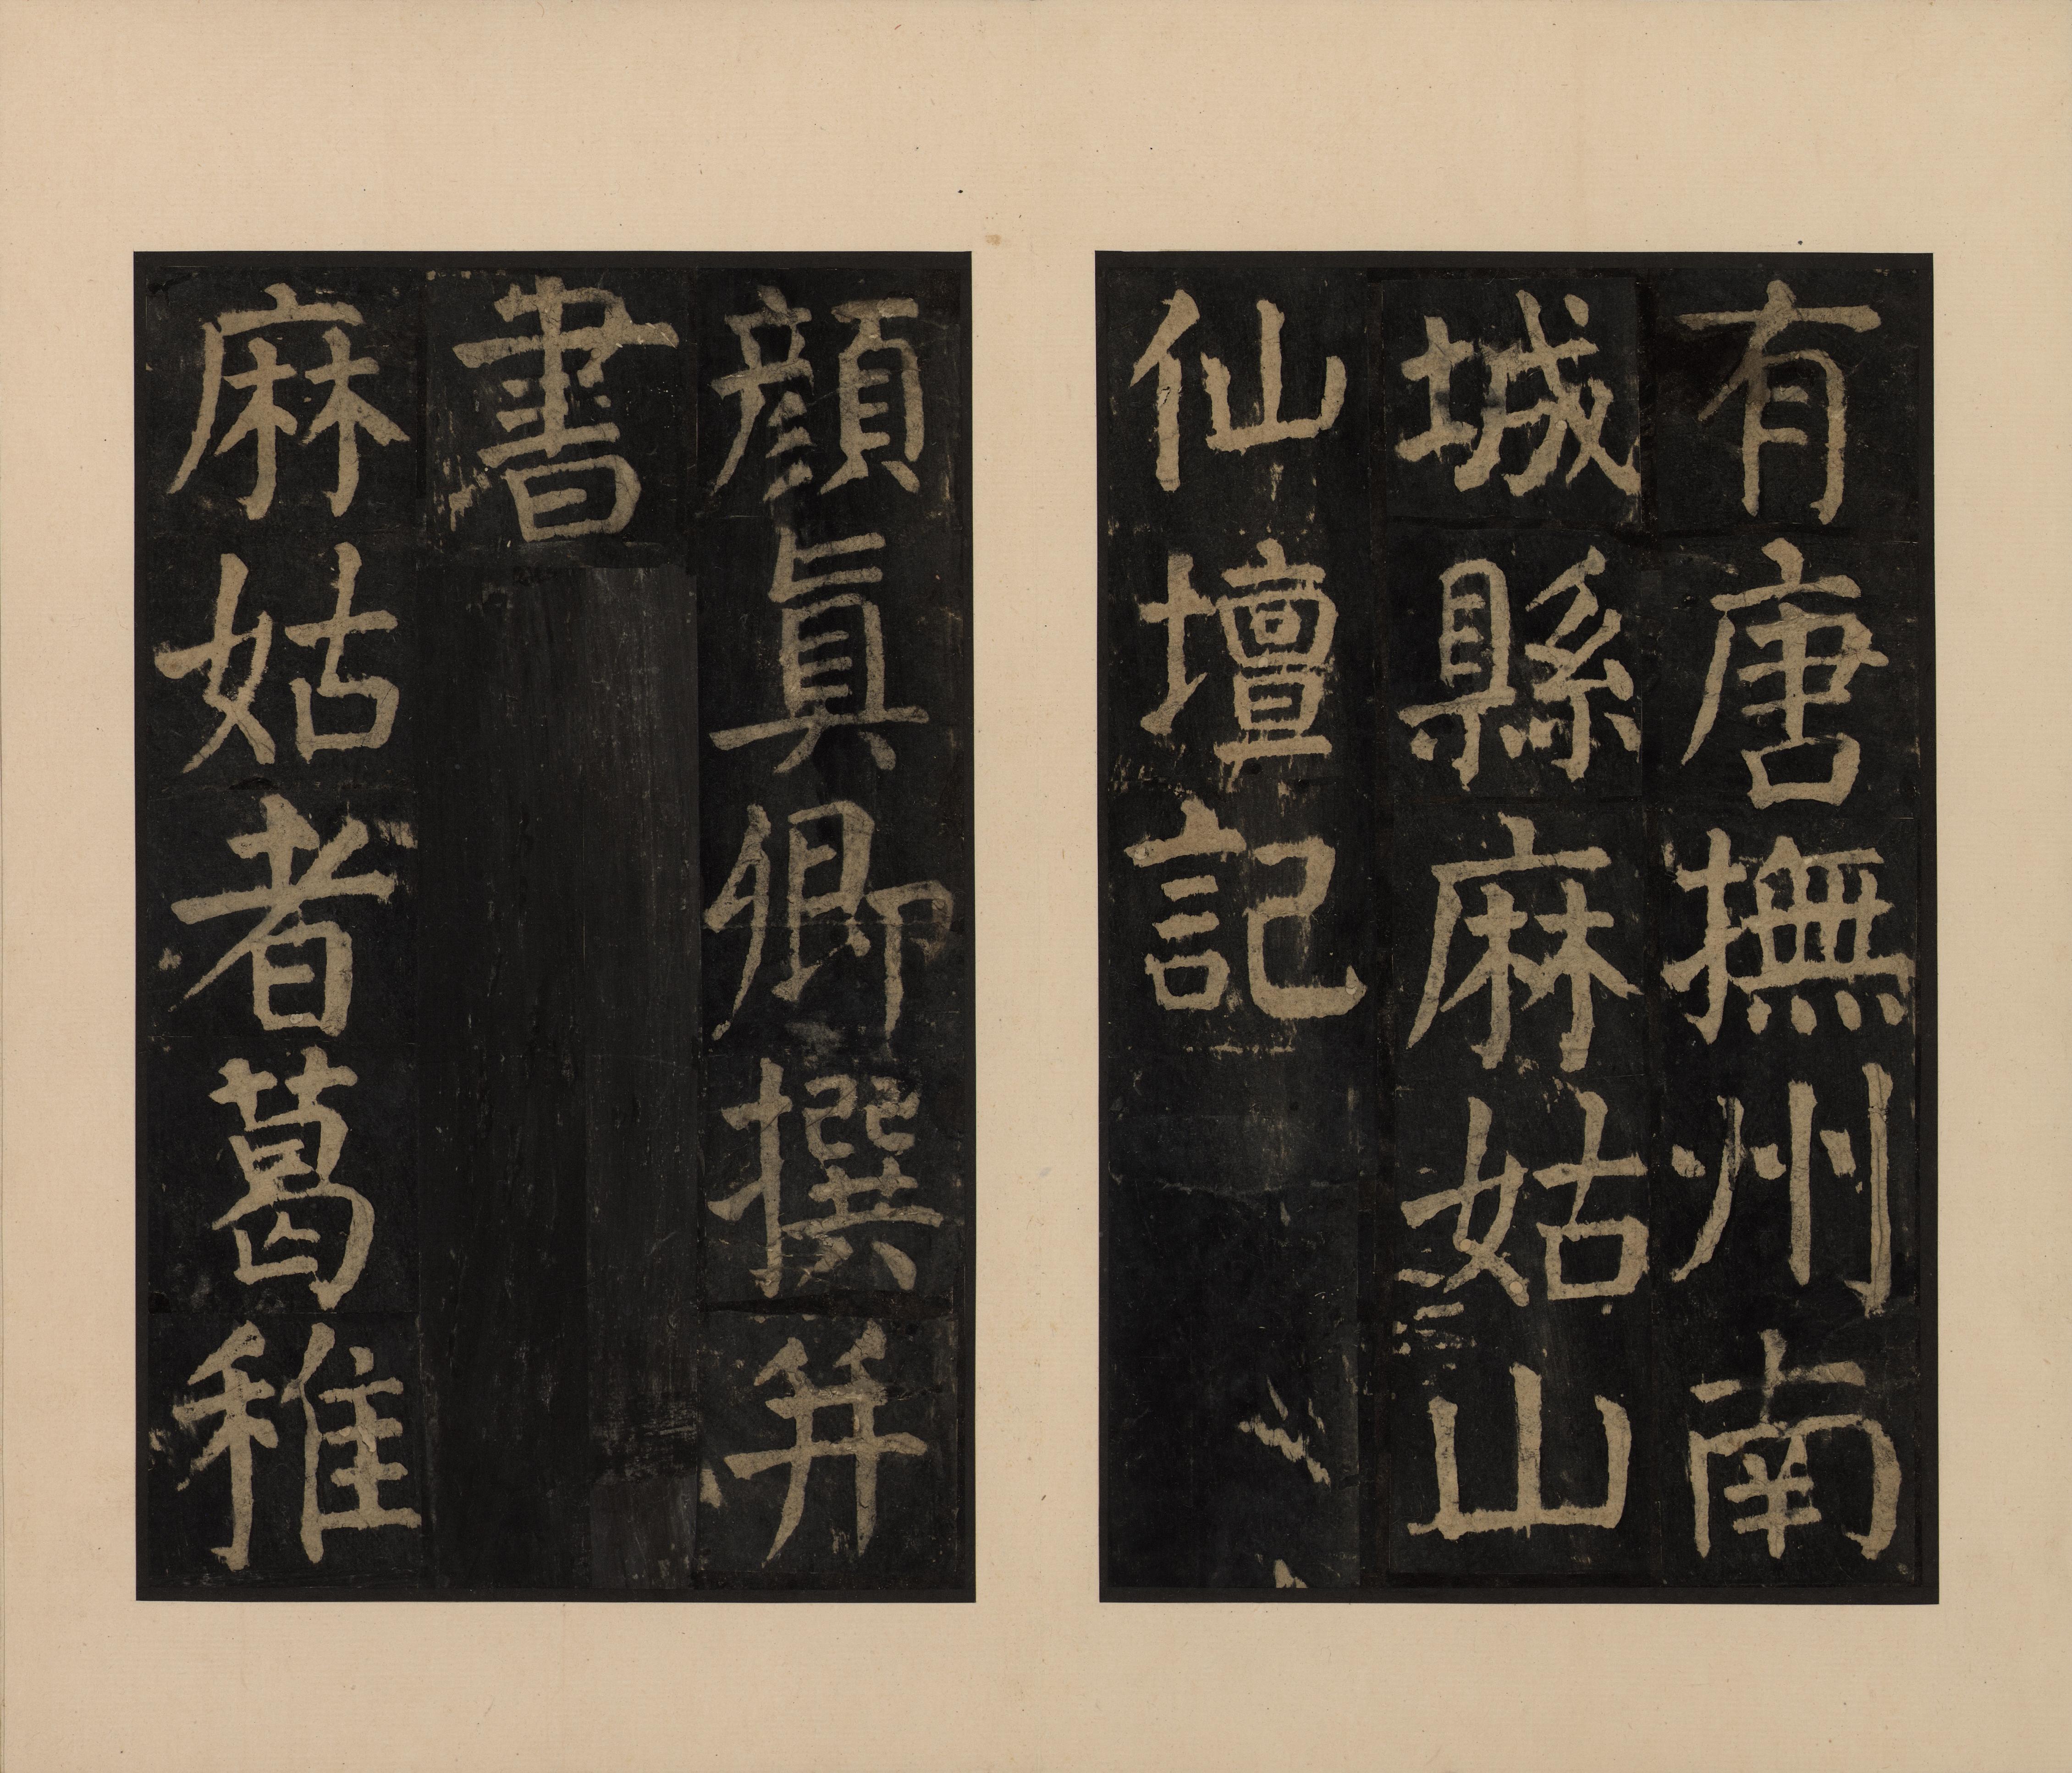 有唐撫州南
城縣麻姑山
仙壇記
顏眞卿撰幷
書
麻姑者葛稚